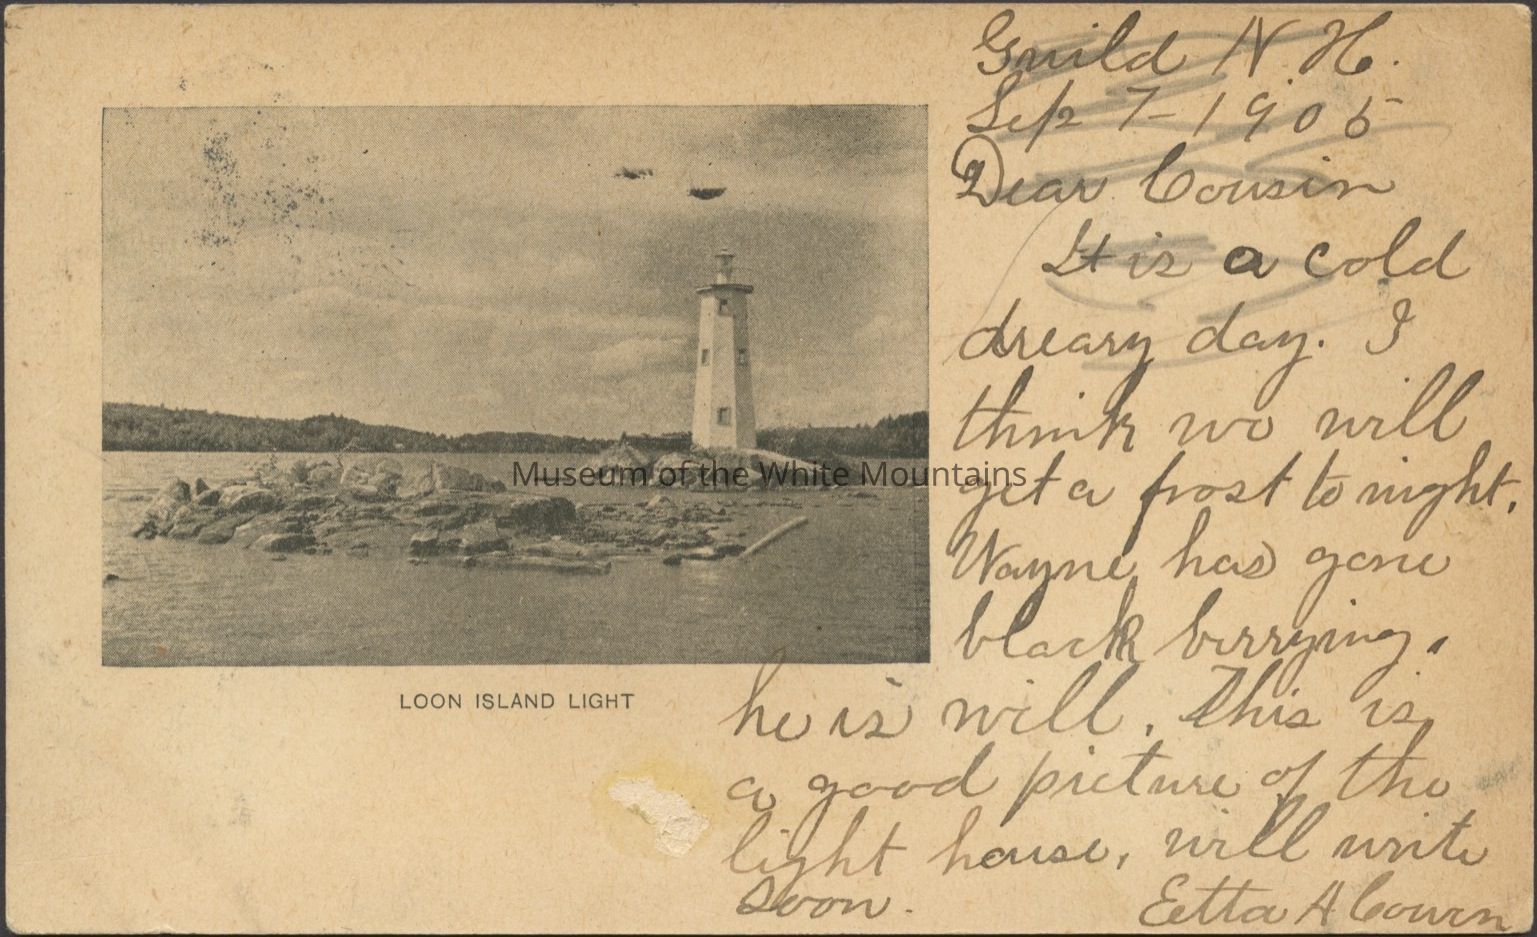 Guild N. H.
Sep 7-1905
Dear Cousin
It is a cold
dreary day. I
think we will
get a frost to night.
Wayne has gone
black berrying.
he is well. This is
a good picture of the
light house, will write
soon.
Etta H Cowen
LOON ISLAND LIGHT
Museum of the White Mountains